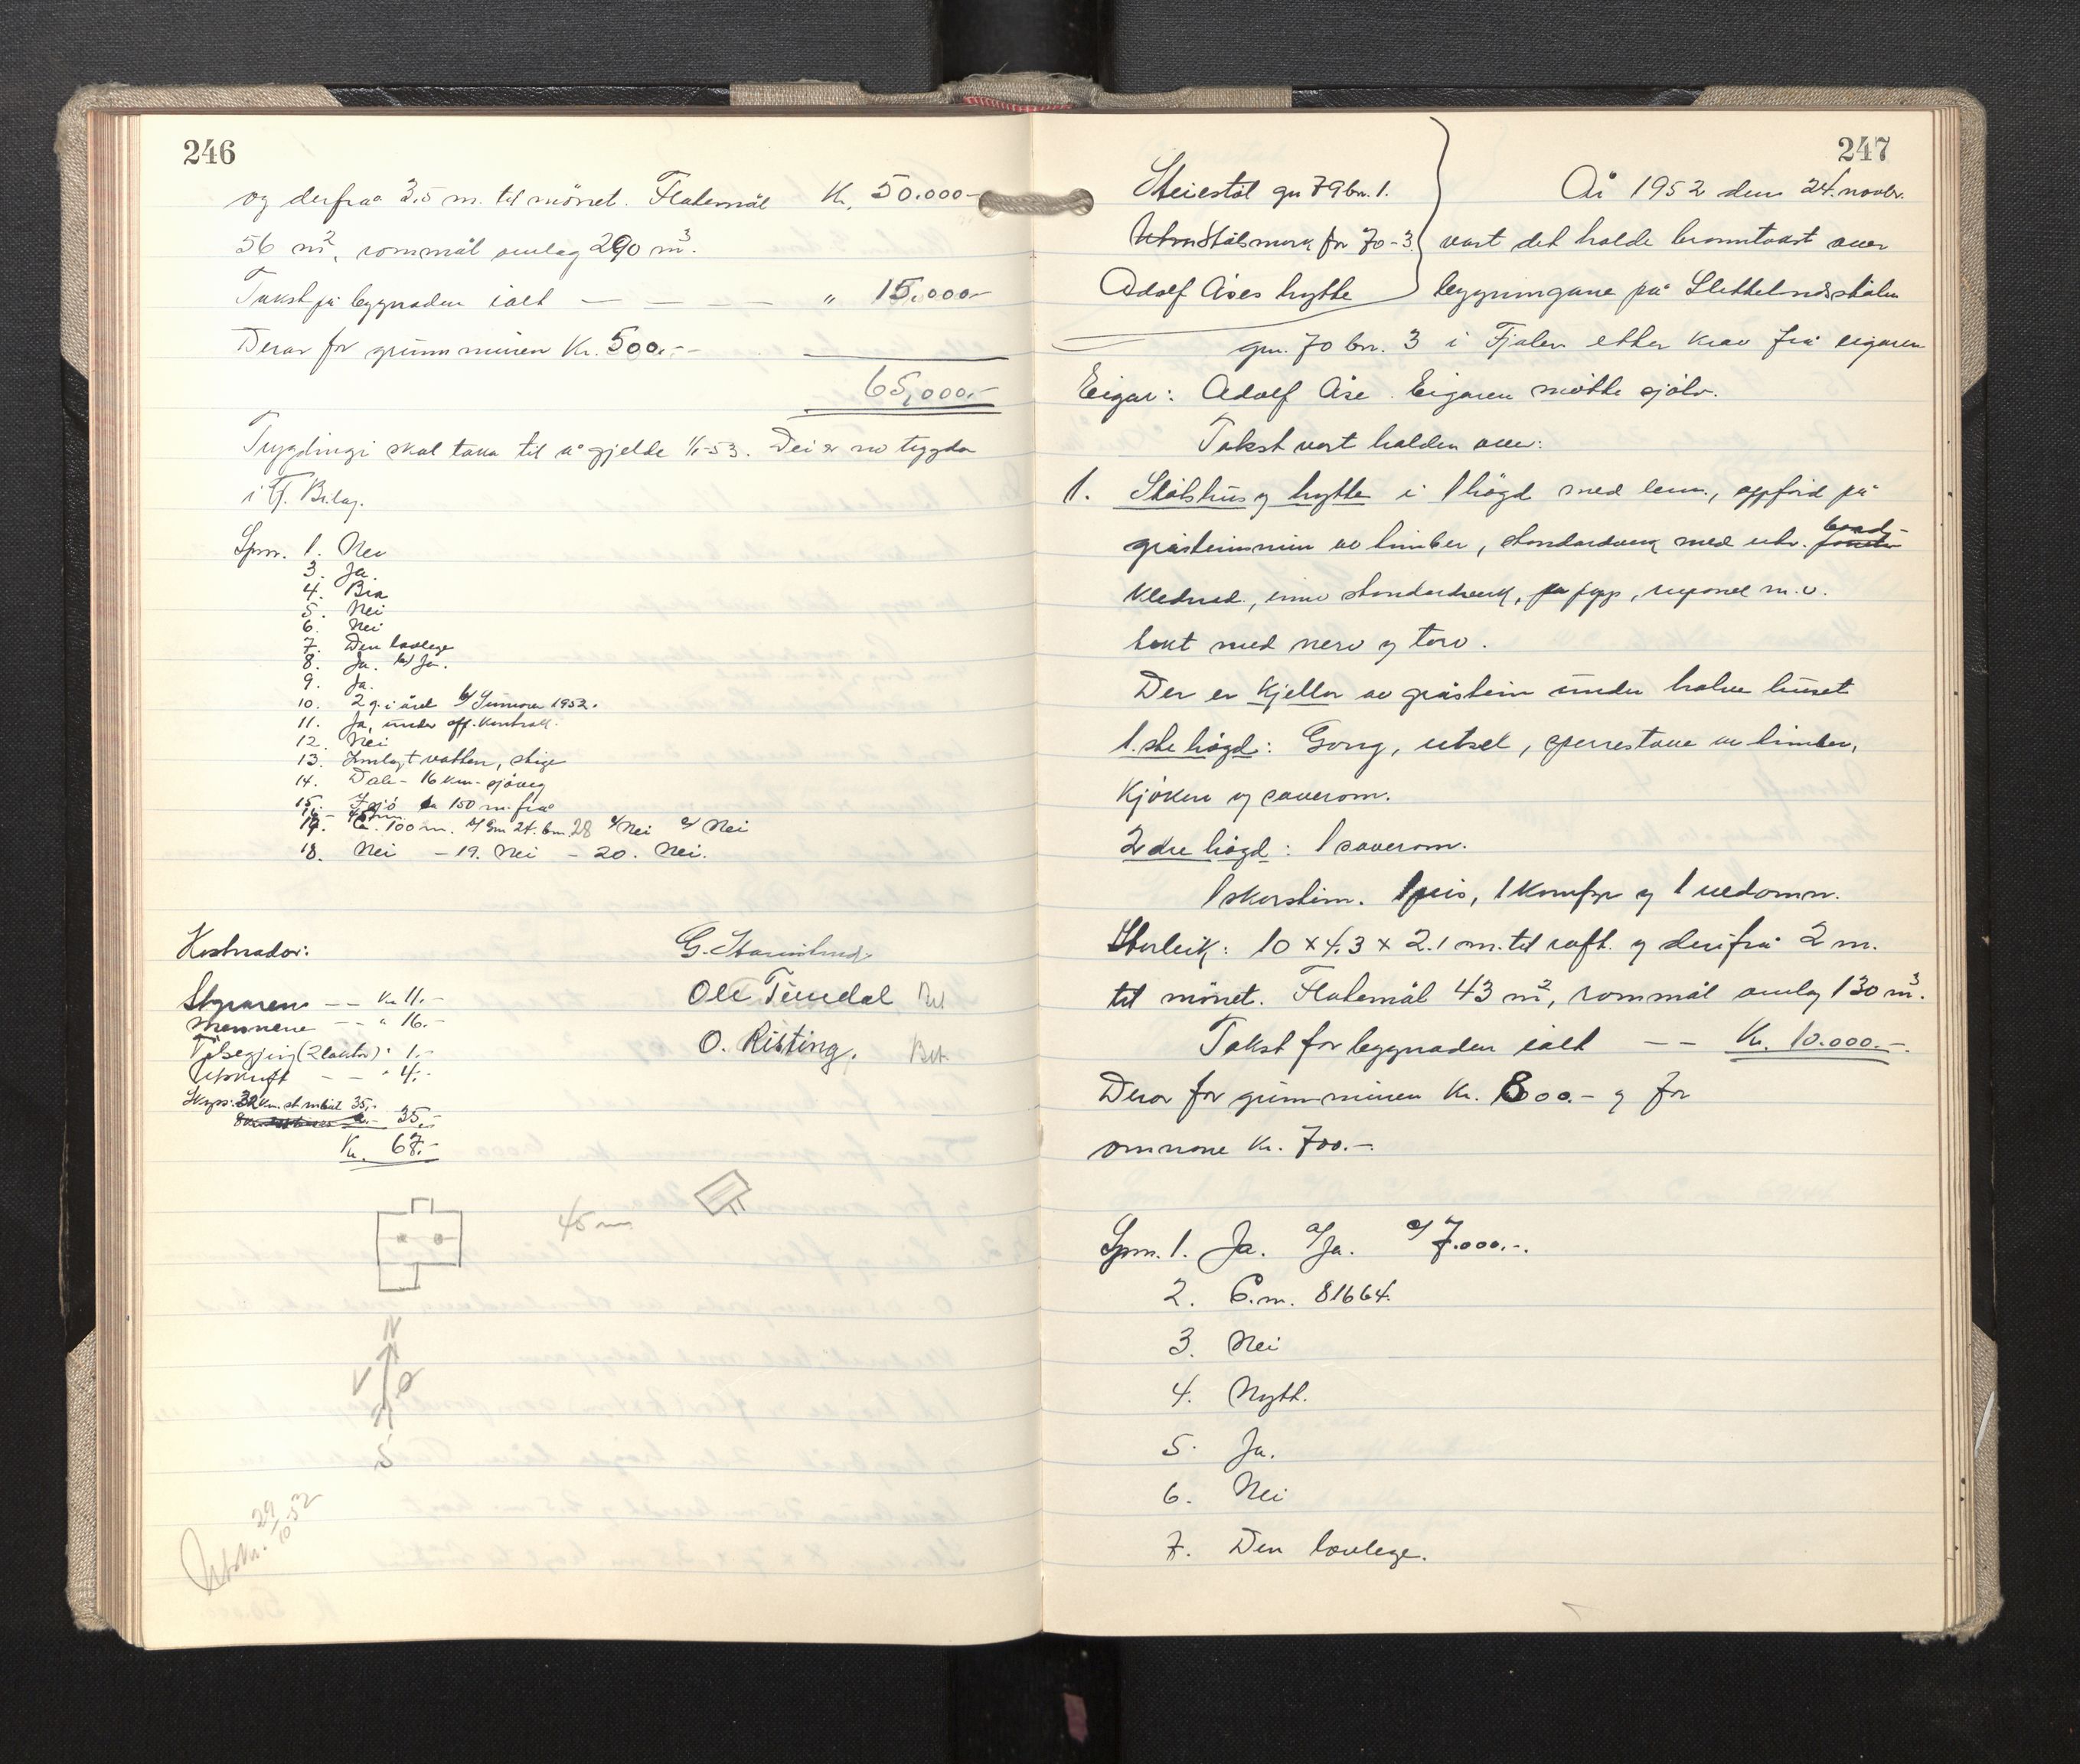 246
og derfra 3,5 m. til mönet. Flatemål Kr. 50.000.-
56 m², rommål omlag 290 m³.
Takst på bygnaden ialt — — — — " 15.000.-
Derav for grunnmuren Kr. 500.--
65,000.-
Trygdingi skal taka til å gjelde 1/1-53. Dei er no trygda
i Bilag.
Spm. 1. Nei
3. Ja.
4. Bra
5. Nei
6. Nei
7. Den lovlege
8. Ja. b/ Ja.
9. Ja.
10. 2 g. i året b/ Sumaren 1952.
11. Ja, under off. kontroll.
12. Nei
13. Innlagt vatten, stige
14. Dale - 16 km. sjöveg
15. I sjö ca 150 m. frå
17. Ca. 100 m. b/ Gm 24. bm. 28 c/ Nei d/ Nei
18. Nei - 19. Nei - 20. Nei.
Kostnader:
Styraren -- Kr. 11.-
Mennene -- " 16.-
Tilsegjing (2 takstm) " 1.-
Utskrift -- " 4.-
Skyss: 32 km. st m båt 35,-
35,-
Kr. 67.-
G.
Ole Tundal Bet
O. Risting. Bet.
45 m
N
V Ø
S
Utskr. 29/10-52
247
gn 79 bn. 1.
for 70-3
Adolf Åses hytte
År 1952 den 24. novbr.
vart det halde branntakst over
bygningane på Slettelndsstölen
gn. 70 bn. 3 i Fjaler etter krav frå eigaren
Eigar: Adolf Åse. Eigaren mötte sjölv.
Takst vart halden over:
1. Stölshus og hytte i 1 högd med lem, oppförd på
gråsteinsmur av timber, standardverk med utv. bord-
klednad, innv standardverk, papp, m.v.
tekt med never og torv.
Der er kjellar av gråstein under halve huset
1. ste högd: Gong, utsel, sperrestove av timber,
Kjöken og soverom.
2 dre högd: 1 soverom.
1 skorstein. 1 peis, 1 komfyr og 1 vedomn.
Storleik: 10 x 4.3 x 2.1 m. til raft. og derifrå 2 m.
til mönet. Flatemål 43 m², rommål omlag 130 m³.
Takst for bygnaden ialt -- Kr. 10.000.-.
Derav for grunnmuren Kr. 800.- og for
omnane Kr. 700.-.
Spm. 1. Ja. a/ Ja. c/ 7.000.-.
2. C.m. 81664.
3. Nei
4. Nytt.
5. Ja.
6. Nei
7. Den lovlege.